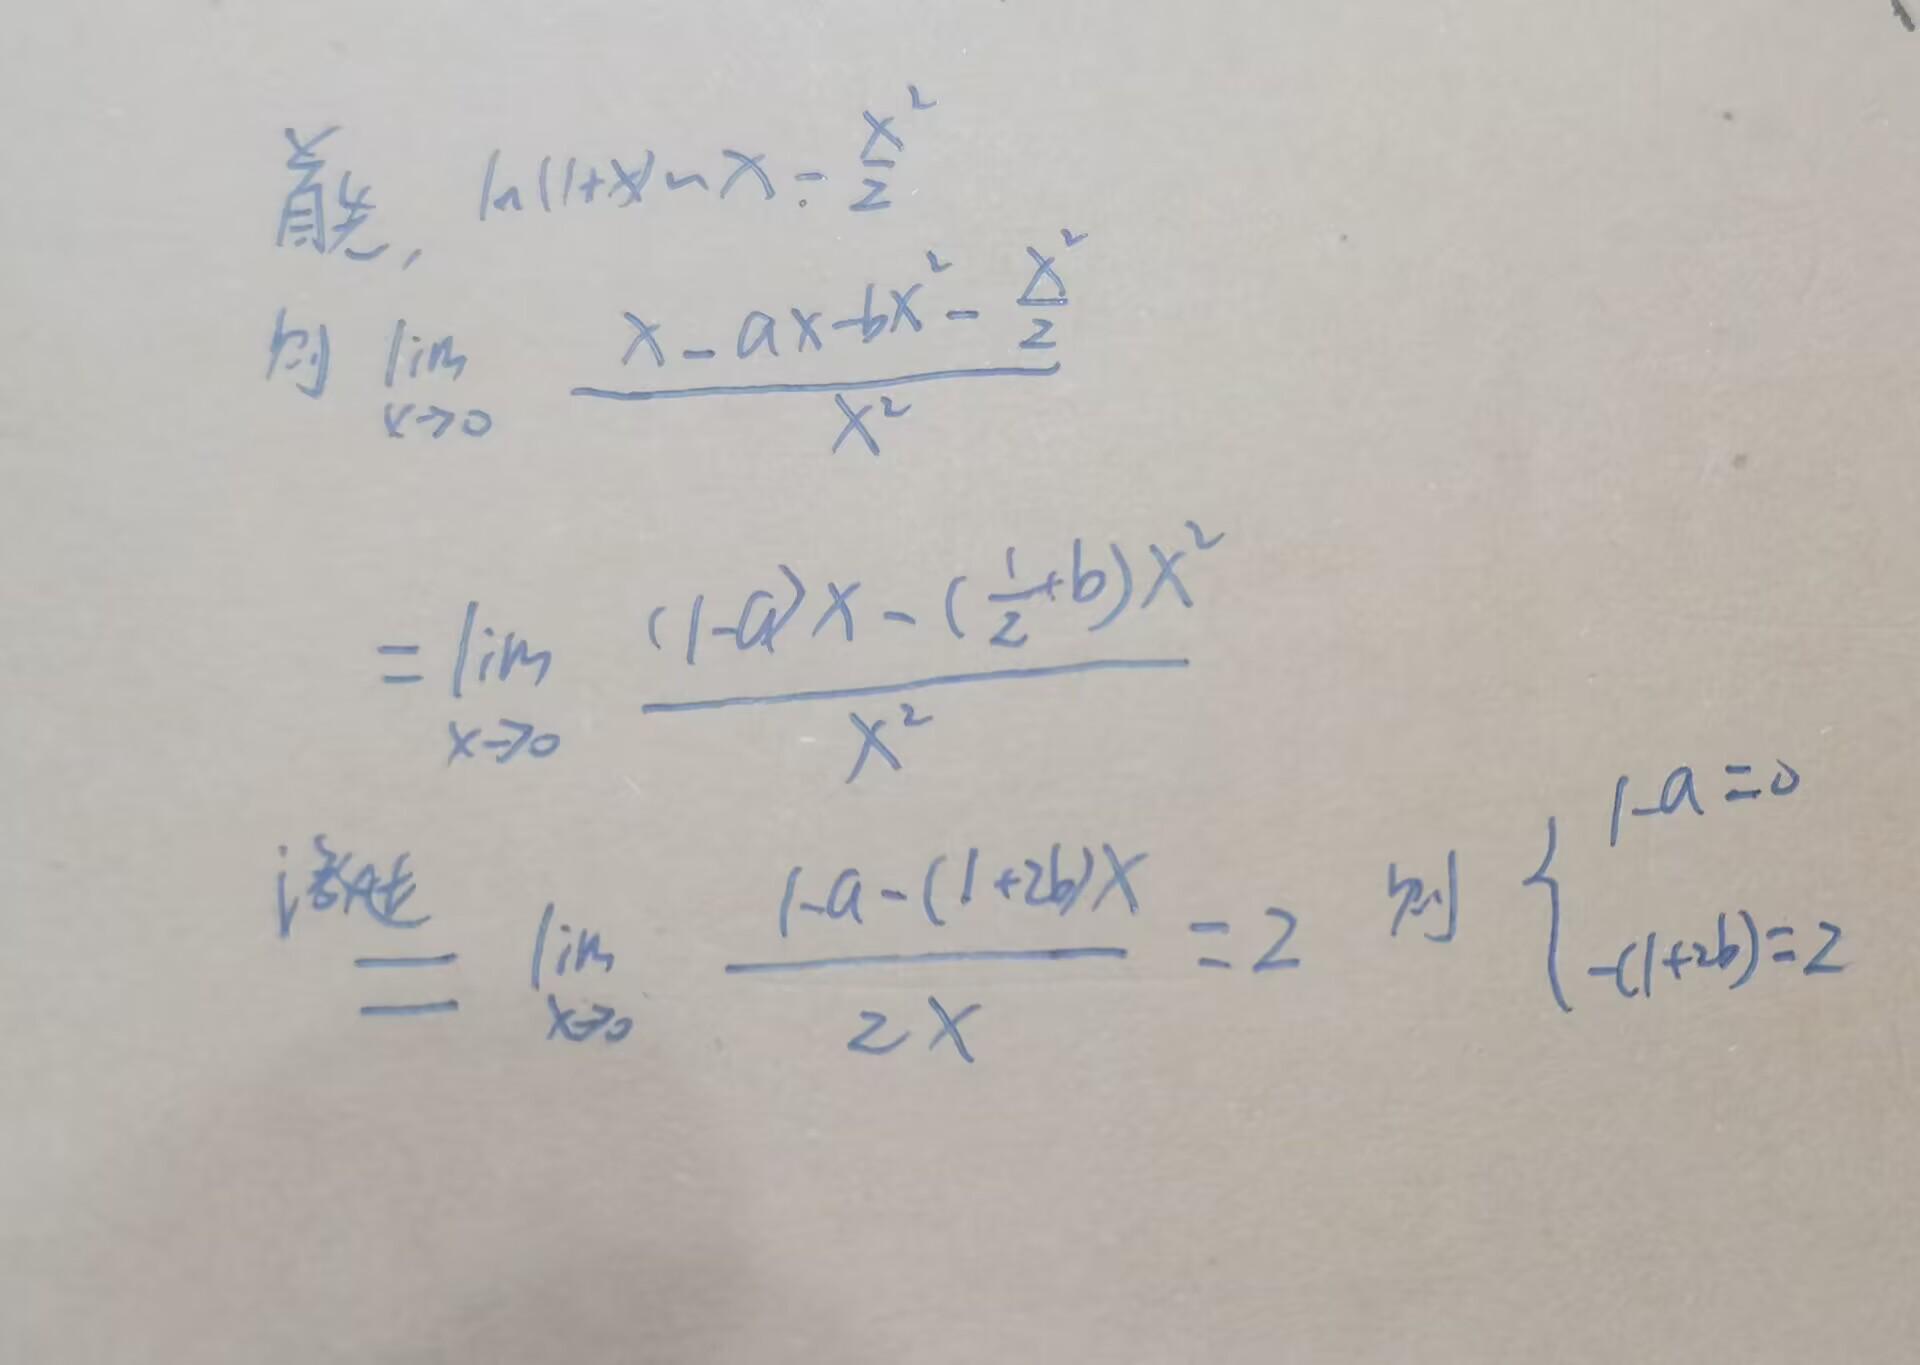 首先, ln(1+x)~x-x²/2
则 lim x→0 (x-ax-bx²-x²/2)/x²
=lim x→0 ((1-a)x-(1/2+b)x²)/x²
洛必达 = lim x→0 (1-a-(1+2b)x)/2x =2 则 { 1-a=0
-(1+2b)=2